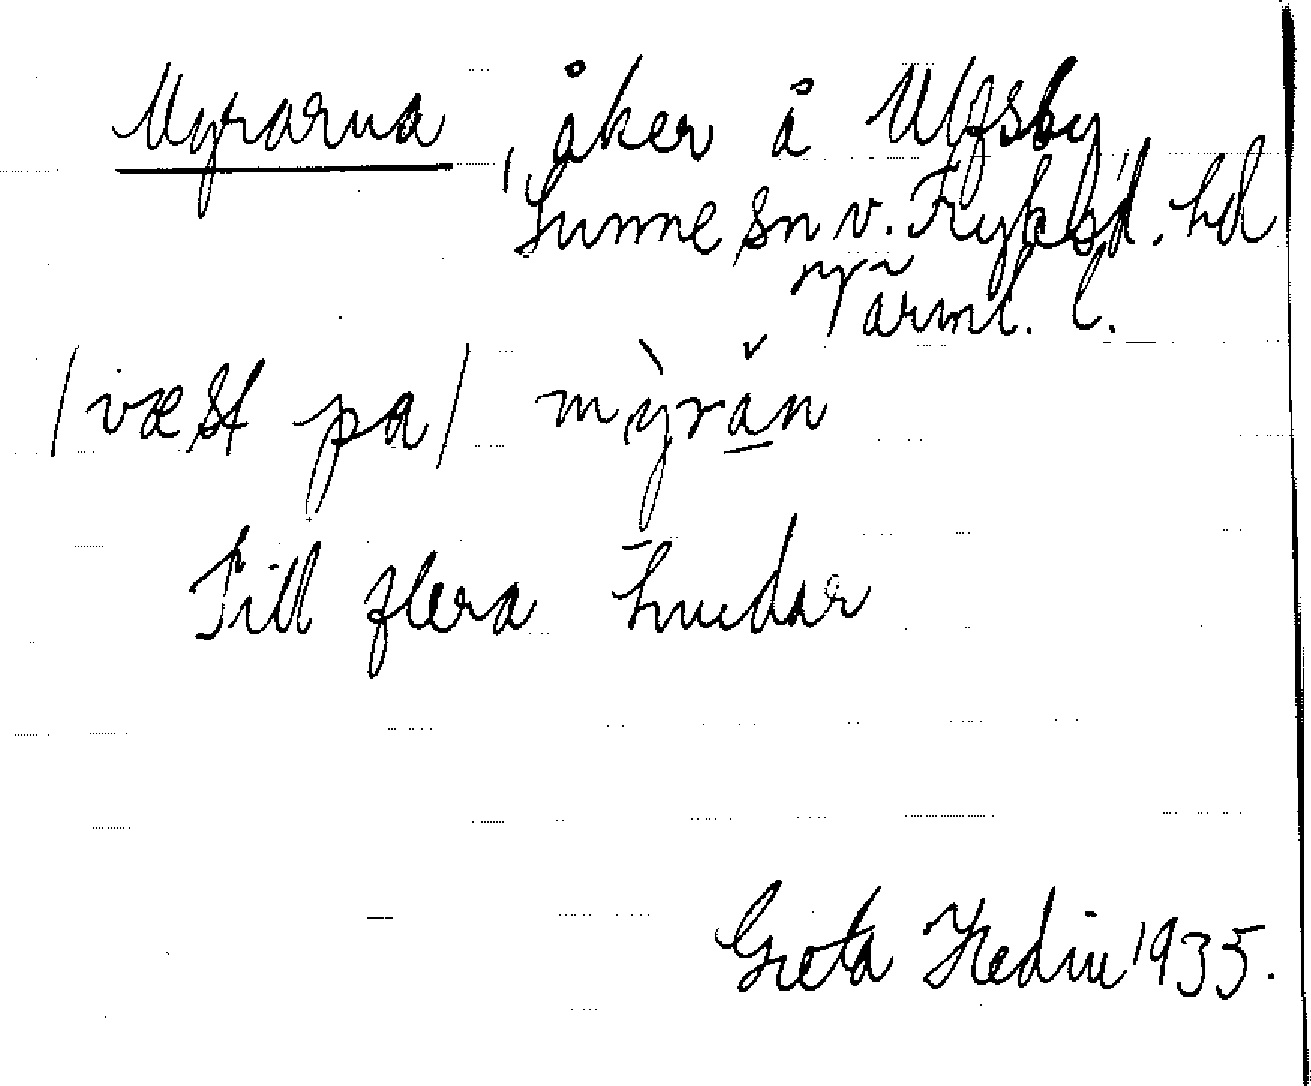 Myrarna, åker å Ulfsby
Sunne sn v. Fryksd. hd
Värml. l.
/væst pa/ mỳrǎ̱n
Till flera
Greta Hedin 1935.